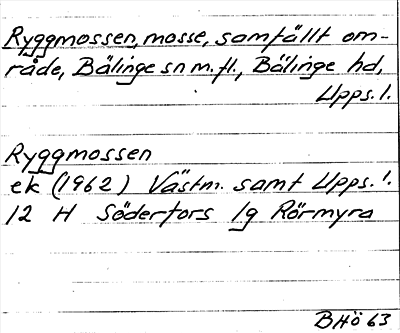 Ryggmossen, mosse, samfällt om-
råde, Bälinge sn m. fl., Bälinge hd,
Upps. l.
Ryggmossen
ek (1962) Västm. samt Upps. l.
12 H Söderfors 1g Rörmyra
BHö 63